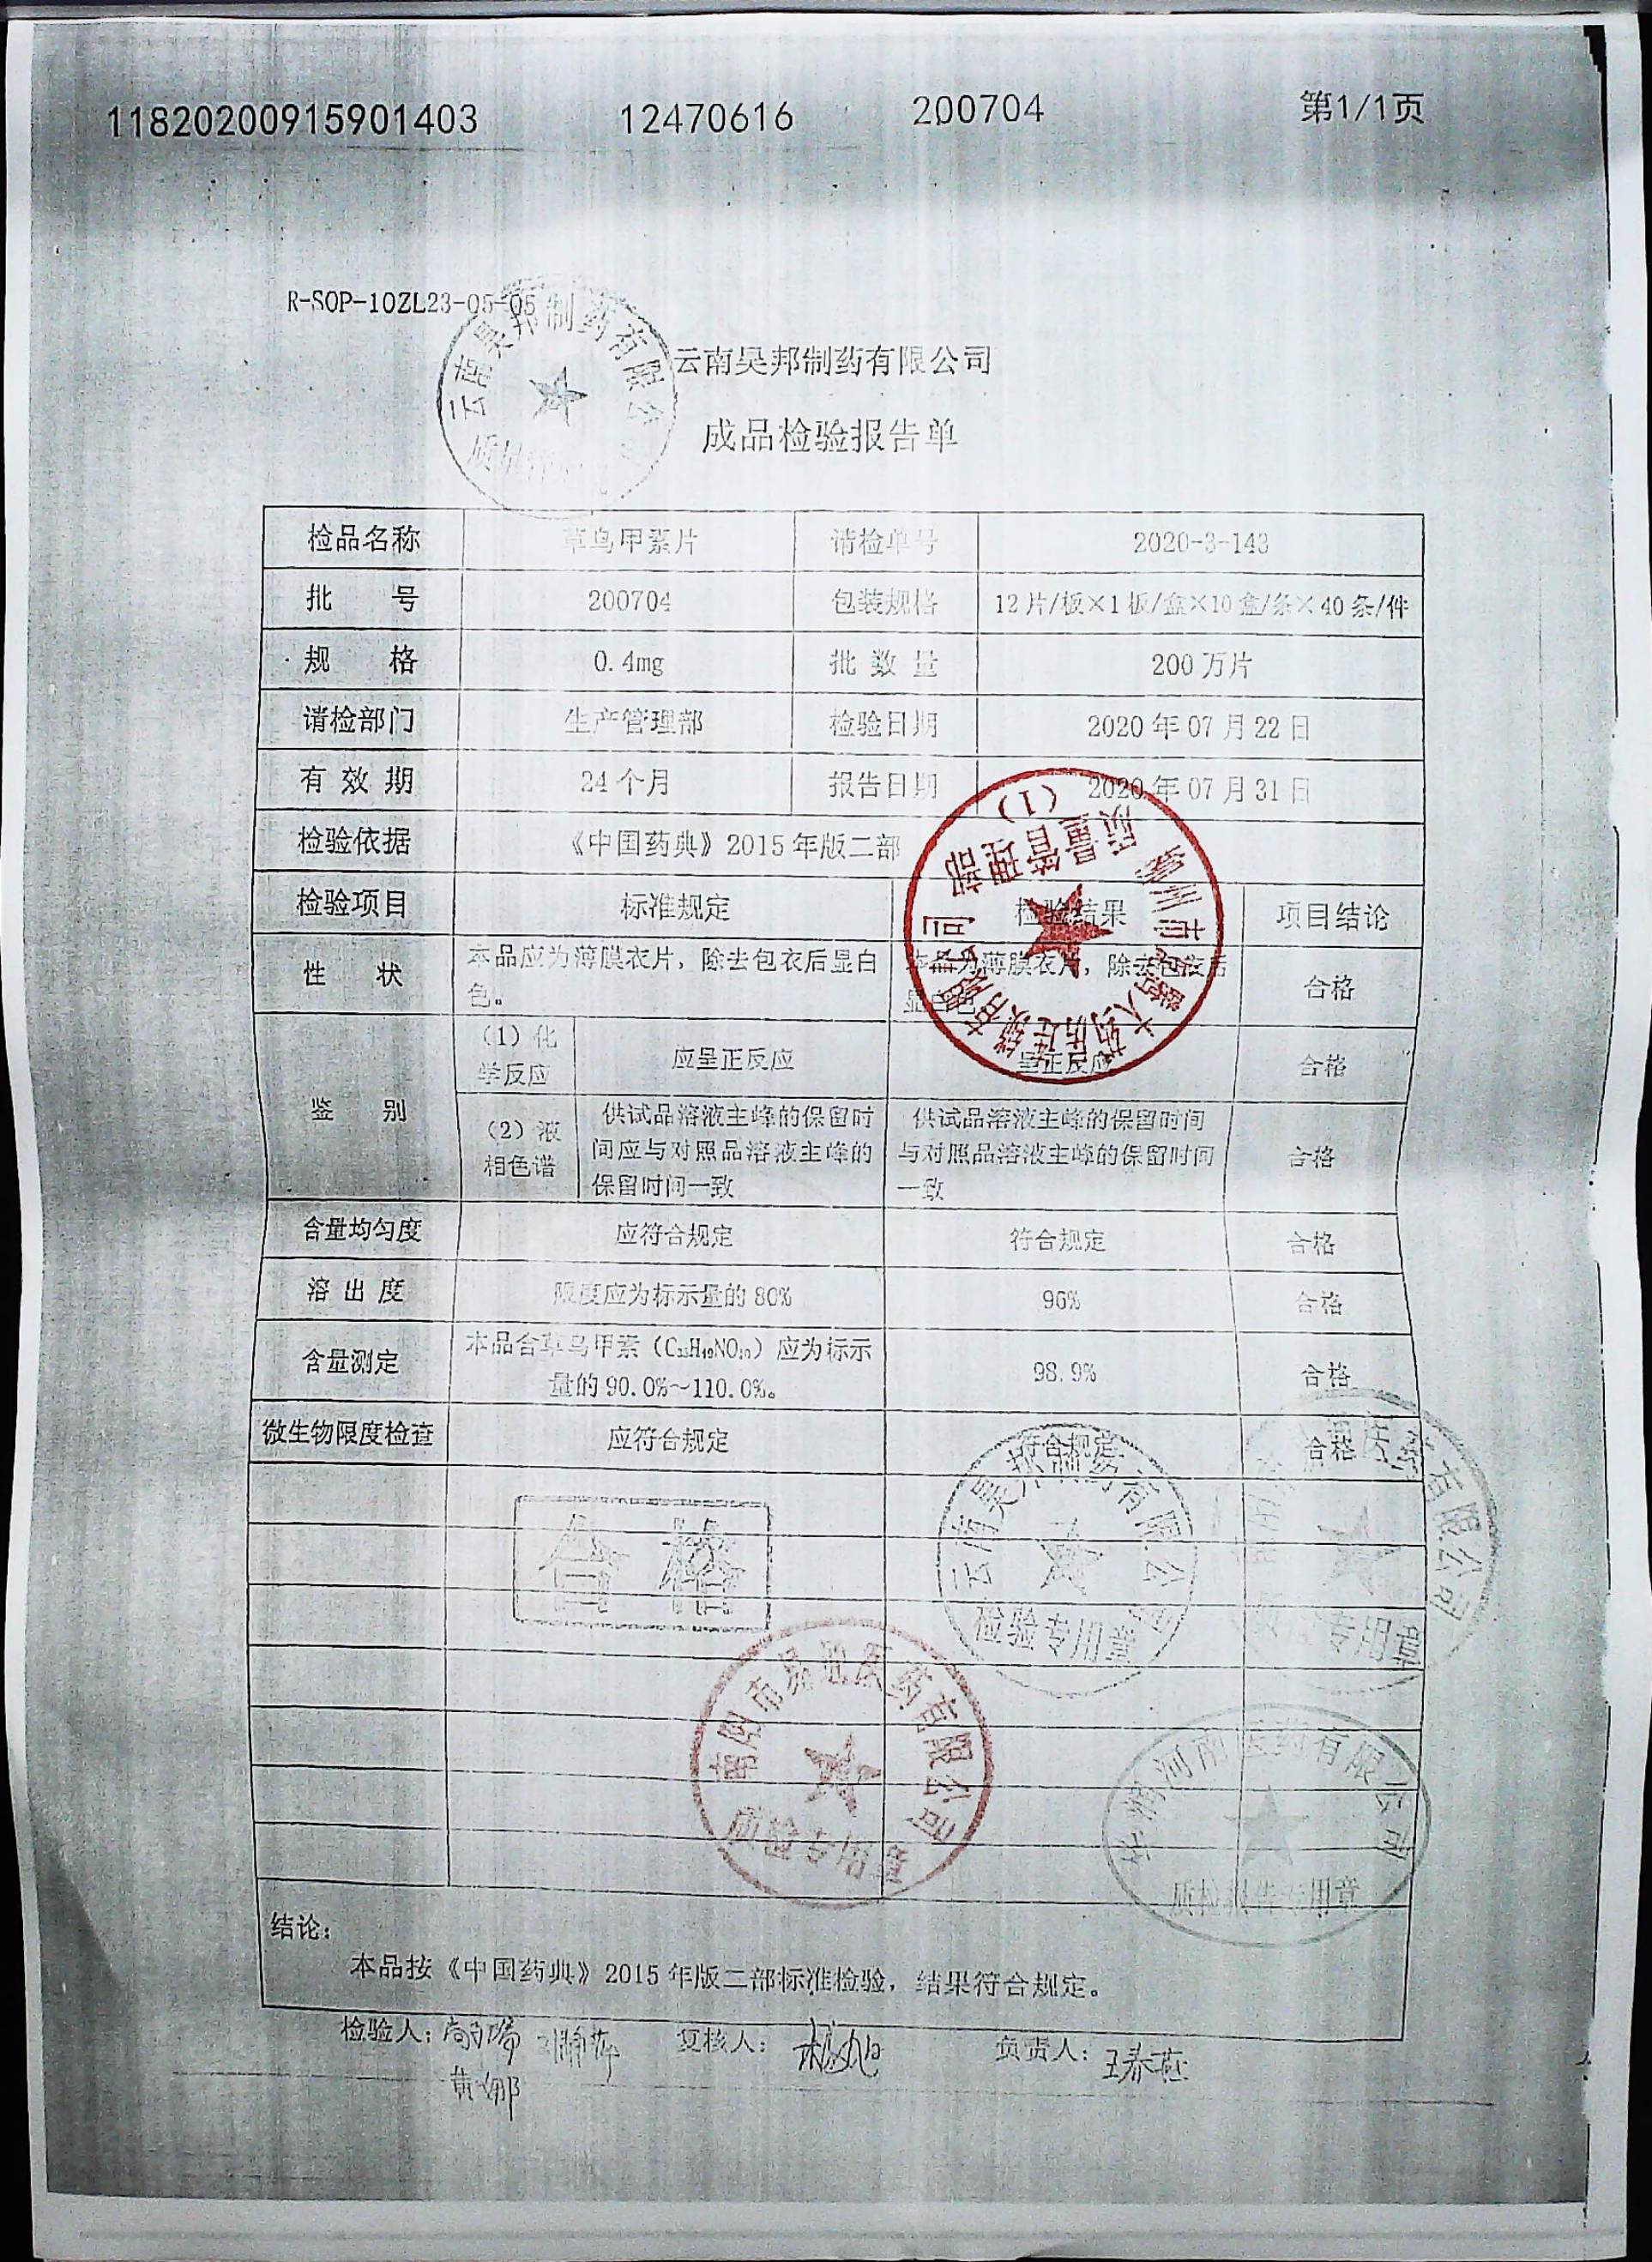 11820200915901403 12470616 200704 第1/1页
R-SOP-10ZL23-05-05
云南昊邦制药有限公司
成品检验报告单
检品名称 草乌甲素片 请检单号 2020-3-143
批 号 200704 包装规格 12片/板×1板/盒×10盒/条×40条/件
规 格 0.4mg 批 数 量 200万片
请检部门 生产管理部 检验日期 2020年07月22日
有 效 期 24个月 报告日期 2020年07月31日
检验依据 《中国药典》2015年版二部
检验项目 标准规定 检验结果 项目结论
性 状 本品应为薄膜衣片，除去包衣后显白
色。
本品为薄膜衣片，除去包衣后
显白色
合格
鉴 别
（1）化
学反应
应呈正反应 呈正反应 合格
（2）液
相色谱
供试品溶液主峰的保留时
间应与对照品溶液主峰的
保留时间一致
供试品溶液主峰的保留时间
与对照品溶液主峰的保留时间
一致
合格
含量均匀度 应符合规定 符合规定 合格
溶 出 度 限度应为标示量的80% 96% 合格
含量测定 本品含草乌甲素（C₃₅H₄₉NO₁₀）应为标示
量的90.0%～110.0%。
98.9% 合格
微生物限度检查 应符合规定 符合规定 合格
合格
云南昊邦制药有限公司
检验专用章
有限公司
专用章
医药有限公司
质检专用章
河南医药有限公司
质检报告专用章
质量管理部
（1）
结论：
本品按《中国药典》2015年版二部标准检验，结果符合规定。
检验人： 复核人： 负责人：王春燕
黄娜